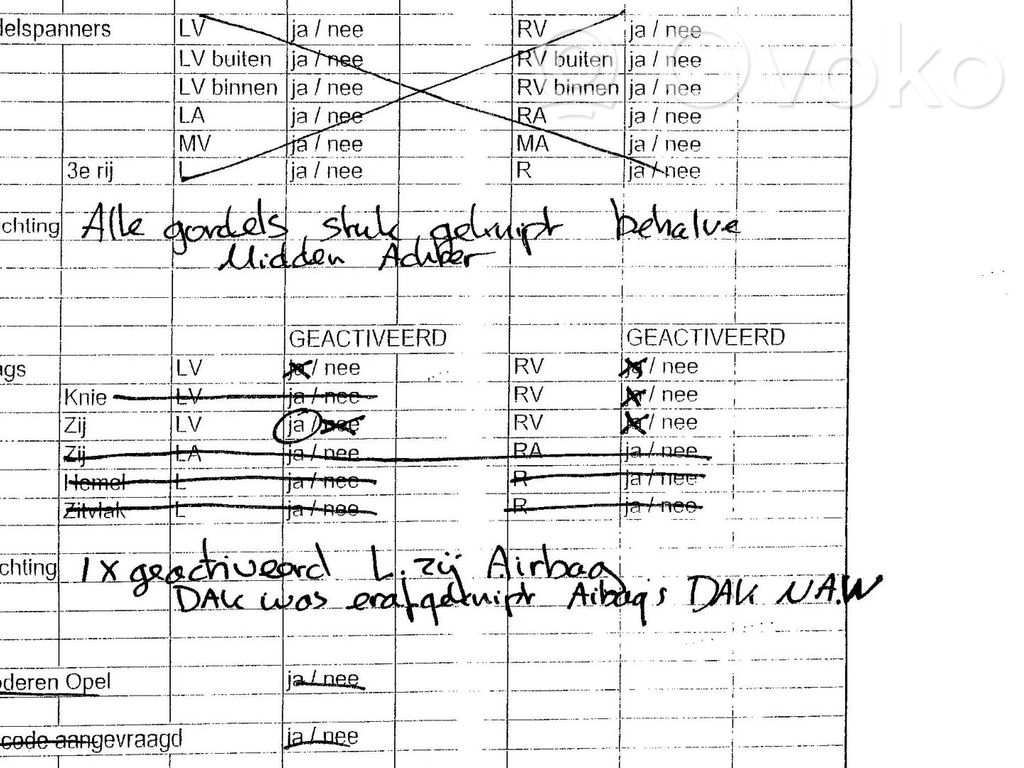 delspanners LV ja / nee RV ja / nee
LV buiten ja / nee RV buiten ja / nee
LV binnen ja / nee RV binnen ja / nee
LA ja / nee RA ja / nee
MV ja / nee MA ja / nee
3e rij L ja / nee R ja / nee
Ovoko
chting Alle gordels stuk geknipt behalve
Midden Achter
GEACTIVEERD GEACTIVEERD
ags LV ja / nee RV ja / nee
Knie LV ja / nee RV ja / nee
Zij LV ja / nee RV ja / nee
Zij LA ja / nee RA ja / nee
Hemel L ja / nee R ja / nee
Zitvlak L ja / nee R ja / nee
chting 1x geactiveerd L. zij Airbag
DAK was erafgeknipt Aibag's DAK N.A.W
oderen Opel ja / nee
code aangevraagd ja / nee